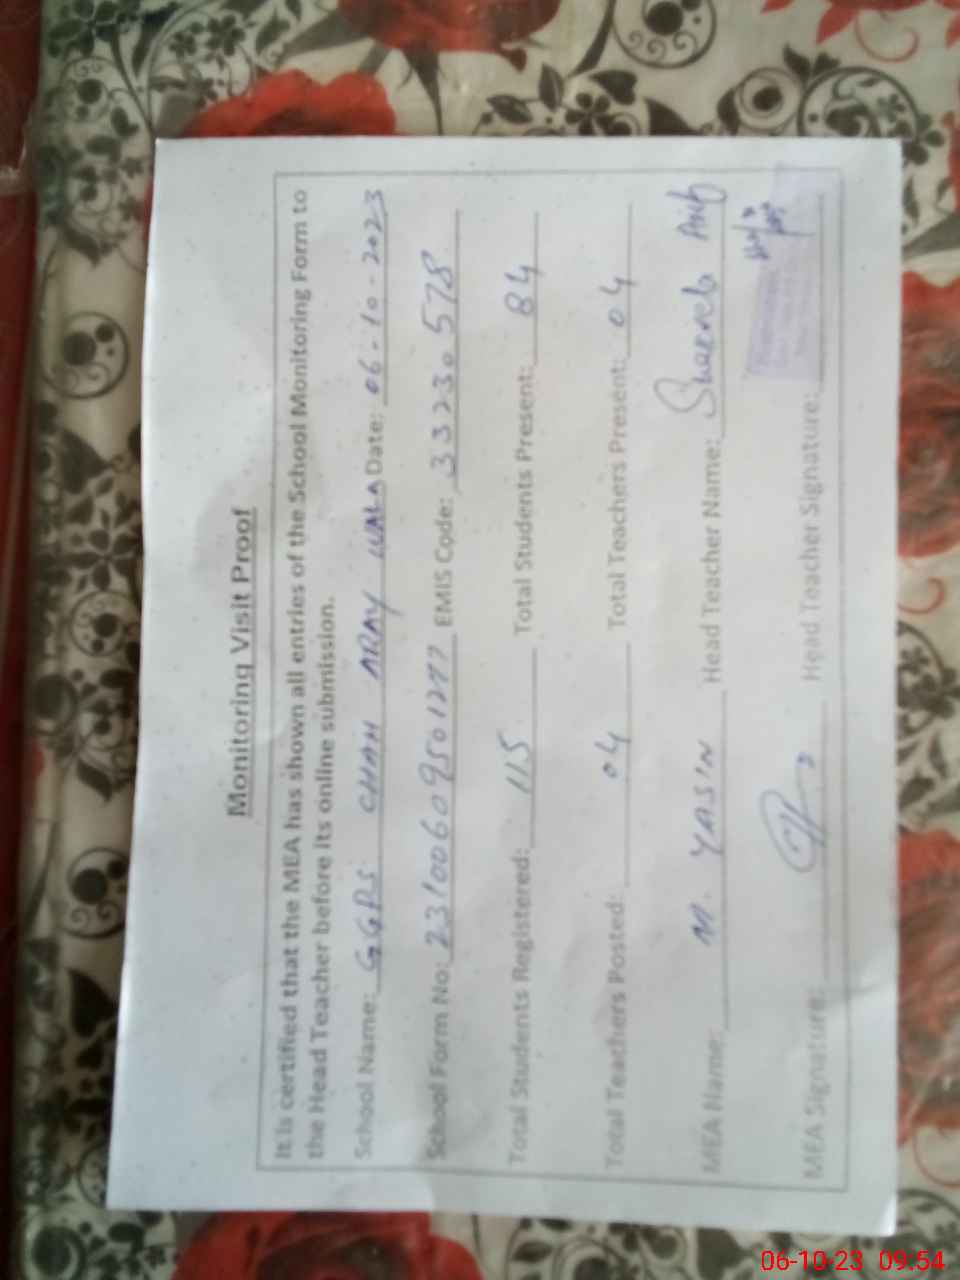 Monitoring Visit Proof
It is certified that the MEA has shown all entries of the School Monitoring Form to
the Head Teacher before its online submission.
School Name: GGPS CHAH ARAY WALA Date: 06-10-2023
School Form No: 23100609501277 EMIS Code: 33230578
Total Students Registered: 115 Total Students Present: 84
Total Teachers Posted: 04 Total Teachers Present: 04
MEA Name: M. YASIN Head Teacher Name:
MEA Signature: Head Teacher Signature:
06-10-23 09:54